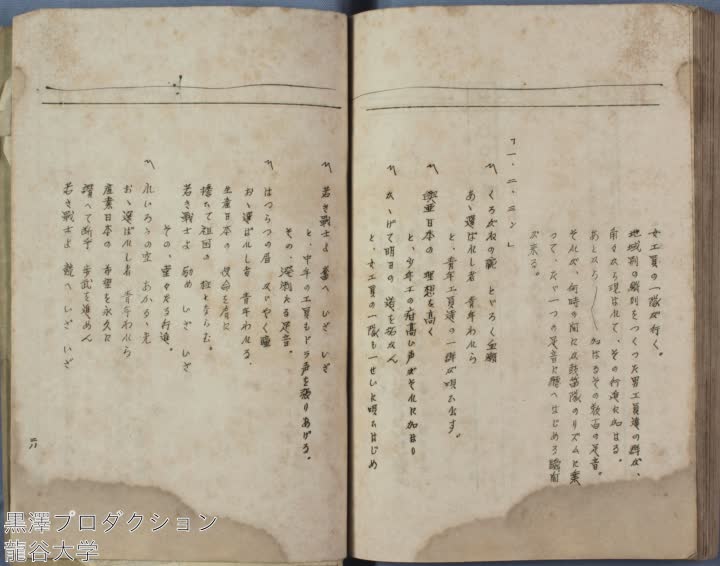 女工員の一隊が行く。
地域別の隊列をつくつた男工員達の群が、
前々から現はれて、その行進に加はる。
あとから〱加はるその数百の足音。
それが、何時の間にか鼓笛隊のリズムに乗
つて、たゞ一つの足音に揃へはじめる瞬間
が来る。
「一、二、三ン」
〽 くろがねの腕 とゞろく血潮
あゝ選ばれし者 青年われら
と、青年工員達の一群が唄ひ出す。
〽 興亜日本の 理想を高く
と、少年工の甲高い声がそれに加はり
〽 かゝげて明日の 道を拓かん
と、女工員の一隊も一せいに唄ひはじめ
〽 若き戦士よ 奮へ いざ いざ
と、中年の工員もドラ声を張りあげる。
その、溌溂たる足音。
〽 はつらつの眉 かゞやく瞳
おゝ選ばれし者 青年われら
生産日本の 使命を肩に
捨てて祖国の 柱とならむ
若き戦士よ 励め いざ いざ
その、堂々たる行進。
〽 くれいろの空 あかるき光
おゝ選ばれし者 青年われら
産業日本の 希望を永久に
讃へて断乎 歩武を進めん
若き戦士よ 競へ いざ いざ
黒澤プロダクション
龍谷大学